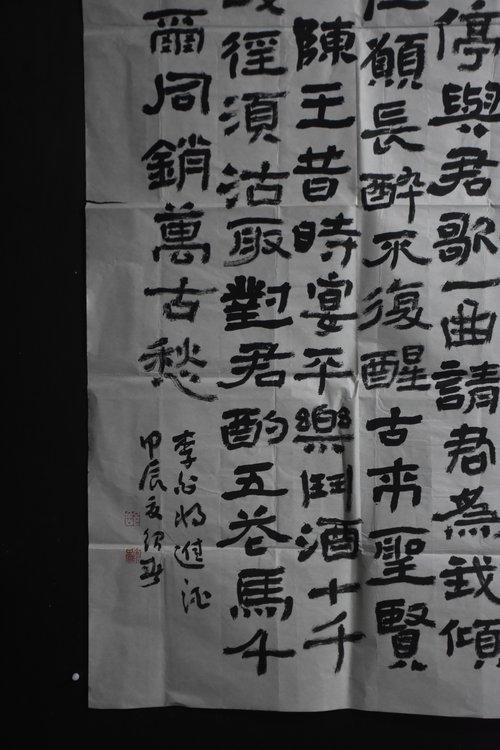 停與君歌一曲請君為我傾
願長醉不復醒古來聖賢
陳王昔時宴平樂鬥酒十千
徑須沽取對君酌五花馬千
爾同銷萬古愁
李白將進酒
甲辰夏